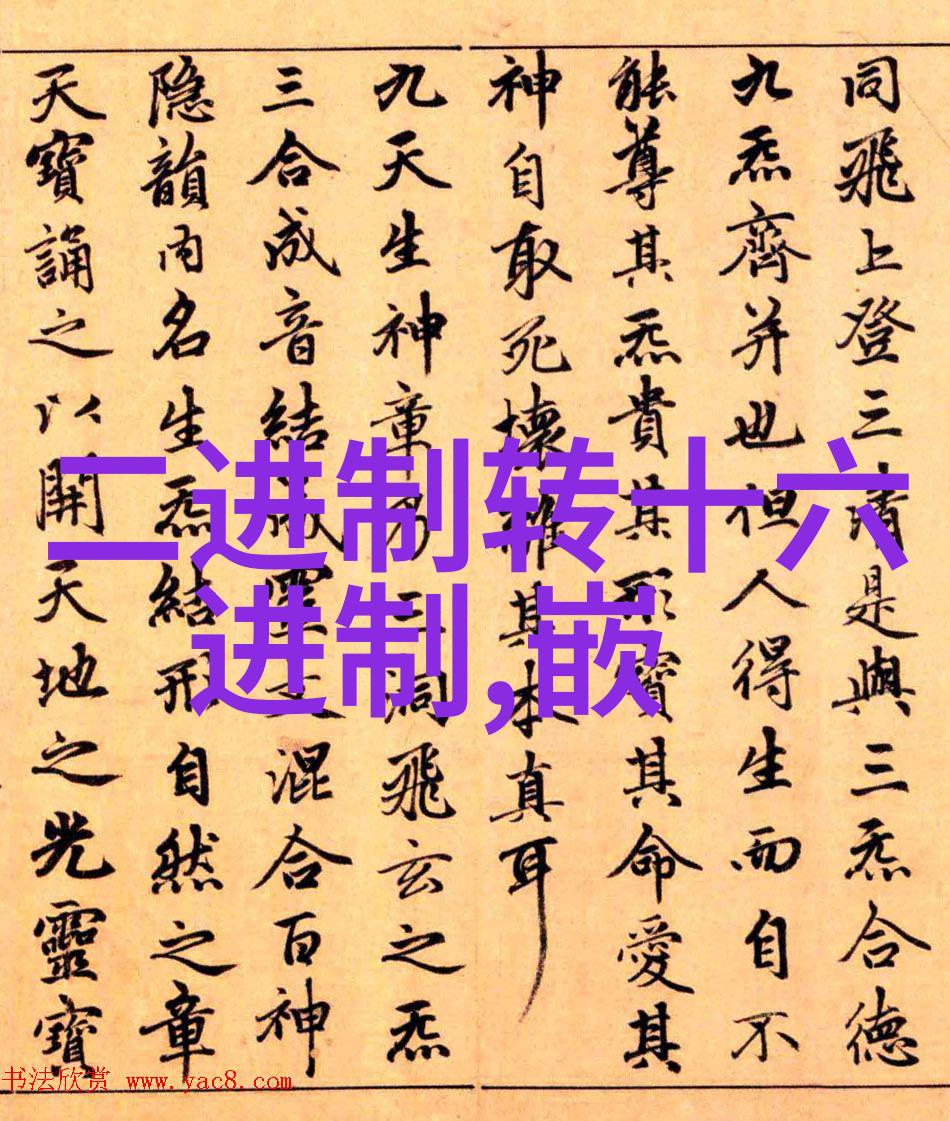 同飛上登三清是與三炁合德
九炁齊并也但人得生而自不
能尊其炁貴其形寶其命愛其
神自取死壞離其本真耳
九天生神章乃三洞飛玄之炁
三合成音結成靈文混合百神
隐韻内名生炁結形自然之章
天寶誦之以開天地之光靈寶
二进制转十六
进制,嵌
书法欣赏 www.yac8.com